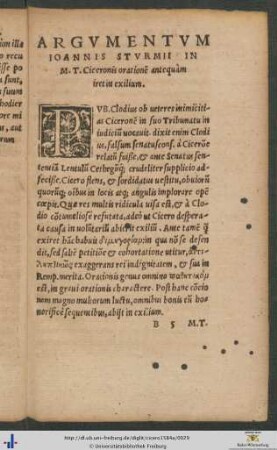 ARGVMENTVM
IOANNIS STVRMII IN
M.T. Ciceronis orationē antequàm
iret in exilium.
PVB. Clodius ob ueteres inimiciti-
as Ciceronē in suo Tribunatu in
iudiciũ uocauit. dixit enim Clodi
us, falsum senatuscons. à Ciceróe
relatũ fuisse, & ante senatus sen-
tentiã Lentulũ Cethegũq́; crudeliter supplicio ad-
fecisse. Cicero flens, & sordidatus uestitu, obuiorũ
quorũq́; oibus in locis atq; angulis implorare opē
cœpit. Quæ res multis ridicula uisa est, & à Clo-
dio cõtumeliose refutata, adeò ut Cicero despera-
ta causa in uoluntariũ abierit exiliũ. Ante tamē q̃
exiret hãc habuit δημηγορίαν: in qua nõ se defen
dit, sed sabtē petitione & cohortatione utitur,
exaggerans rei indignitatem, & sui in
Remp. merita. Orationis genus omnino παθητικόν
est, in graui orationis charactere. Post hanc cõcio
nem magno multorum luctu, omnibus bonis eũ ho-
norificē sequentibus, abijt in exilium.
B 5 M.T.
http://dl.ub.uni-freiburg.de/diglit/cicero1584a/0029
© Universitätsbibliothek Freiburg